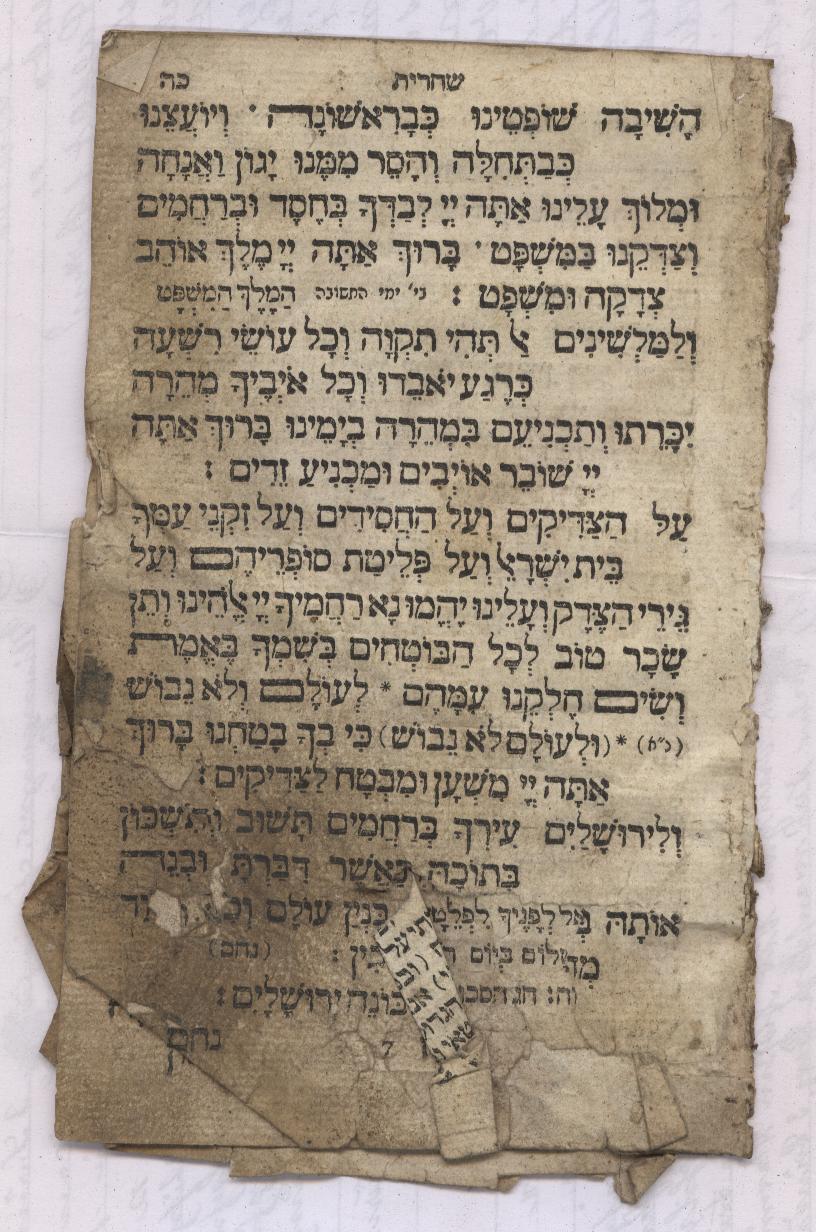 שחרית כה
הָשִׁיבָה שׁוֹפְטֵינוּ כְּבָרִאשׁוֹנָה · וְיוֹעֲצֵנוּ
כְּבַתְּחִלָּה וְהָסֵר מִמֶּנּוּ יָגוֹן וַאֲנָחָה
וּמְלוֹךְ עָלֵינוּ אַתָּה יְיָ לְבַדְּךָ בְּחֶסֶד וּבְרַחֲמִים
וְצַדְּקֵנוּ בַּמִּשְׁפָּט · בָּרוּךְ אַתָּה יְיָ מֶלֶךְ אוֹהֵב
צְדָקָה וּמִשְׁפָּט : בי' ימי התשובה הַמֶּלֶךְ הַמִּשְׁפָּט
וְלַמַּלְשִׁינִים אַל תְּהִי תִקְוָה וְכָל עוֹשֵׂי רִשְׁעָה
כְּרֶגַע יֹאבֵדוּ וְכָל אֹיְבֶיךָ מְהֵרָה
יִכָּרֵתוּ וְתַכְנִיעֵם בִּמְהֵרָה בְיָמֵינוּ בָּרוּךְ אַתָּה
יְיָ שׁוֹבֵר אוֹיְבִים וּמַכְנִיעַ זֵדִים :
עַל הַצַּדִּיקִים וְעַל הַחֲסִידִים וְעַל זִקְנֵי עַמְּךָ
בֵּית יִשְׂרָאֵל וְעַל פְּלֵיטַת סוֹפְרֵיהֶם וְעַל
גֵּירֵי הַצֶּדֶק וְעָלֵינוּ יֶהֱמוּ נָא רַחֲמֶיךָ יְיָ אֱלֹהֵינוּ וְתֵן
שָׂכָר טוֹב לְכָל הַבּוֹטְחִים בְּשִׁמְךָ בֶּאֱמֶת
וְשִׂים חֶלְקֵנוּ עִמָּהֶם * לְעוֹלָם וְלֹא נֵבוֹשׁ
(נ"א) *(וּלְעוֹלָם לֹא נֵבוֹשׁ) כִּי בְךָ בָטָחְנוּ בָּרוּךְ
אַתָּה יְיָ מִשְׁעָן וּמִבְטָח לַצַּדִּיקִים :
וְלִירוּשָׁלַיִם עִירְךָ בְּרַחֲמִים תָּשׁוּב וְתִשְׁכּוֹן
בְּתוֹכָהּ כַּאֲשֶׁר דִּבַּרְתָּ וּבְנֵה
אוֹתָהּ לְפָנֶיךָ בִּנְיַן עוֹלָם
בְּיוֹם (נחם)
חג הסכו בּוֹנֵה יְרוּשָׁלָיִם :
נחם
7